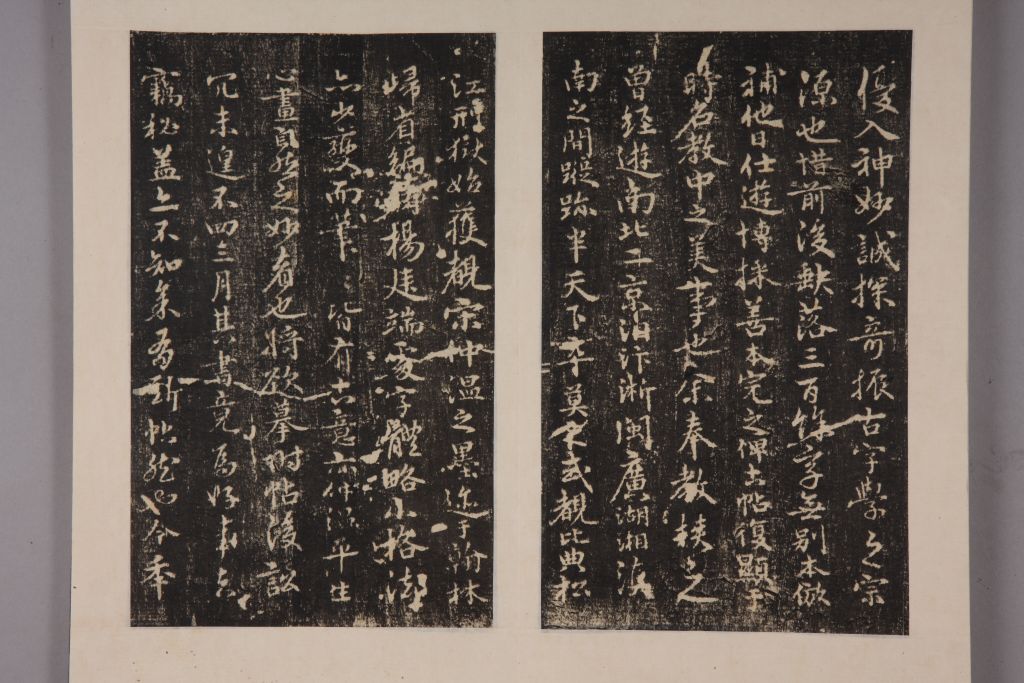 優入神妙誠探奇振古字學之宗
源也惜前後缺落三百餘字無別本倣
補他日仕遊博採善本完之俾古帖復顯于
時名教中之美事也余奉教校之
曾經遊南北二京泊汴浙閩廣湖湘滇
南之間蹤跡半天下幸莫
觀此典松
江刑獄始獲觀宋仲溫之墨迹于翰林
歸省編
楊達端處字體略小格
亦少變而筆〻皆有古意亦仲溫平生
心畫自然之妙者也將欲摹附帖後訟
冗未遑不四三月其書竟為好事者
竊秘蓋亦不知集為斷帖然也今奉